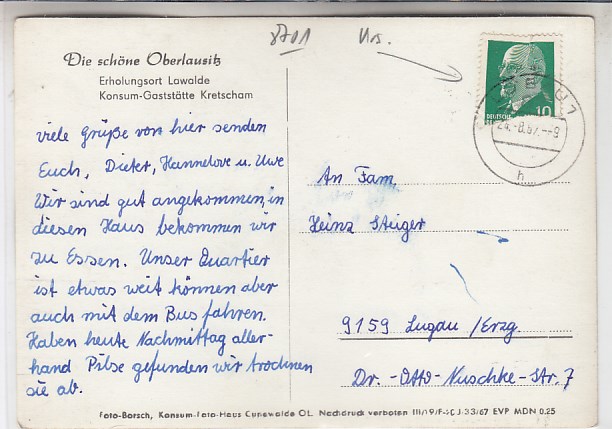 8701 Urs.
Die schöne Oberlausitz
Erholungsort Lawalde
Konsum-Gaststätte Kretscham
10
DEUTSCHE
24.-8.67.--9
h
viele Grüße von hier senden
Euch, Dieter, Hannelore u. Uwe
Wir sind gut angekommen, in
diesen Haus bekommen wir
zu Essen. Unser Quartier
ist etwas weit können aber
auch mit dem Bus fahren.
Haben heute Nachmittag aller-
hand Pilse gefunden wir trocknen
sie ab.
An Fam.
Heinz Steiger
9159 Lugau /Erzg.
Dr.-Otto-Nuschke-Str. 7
Foto-Borsch, Konsum-Foto-Haus Cunewalde OL. Nachdruck verboten III/19/ EVP MDN 0.25